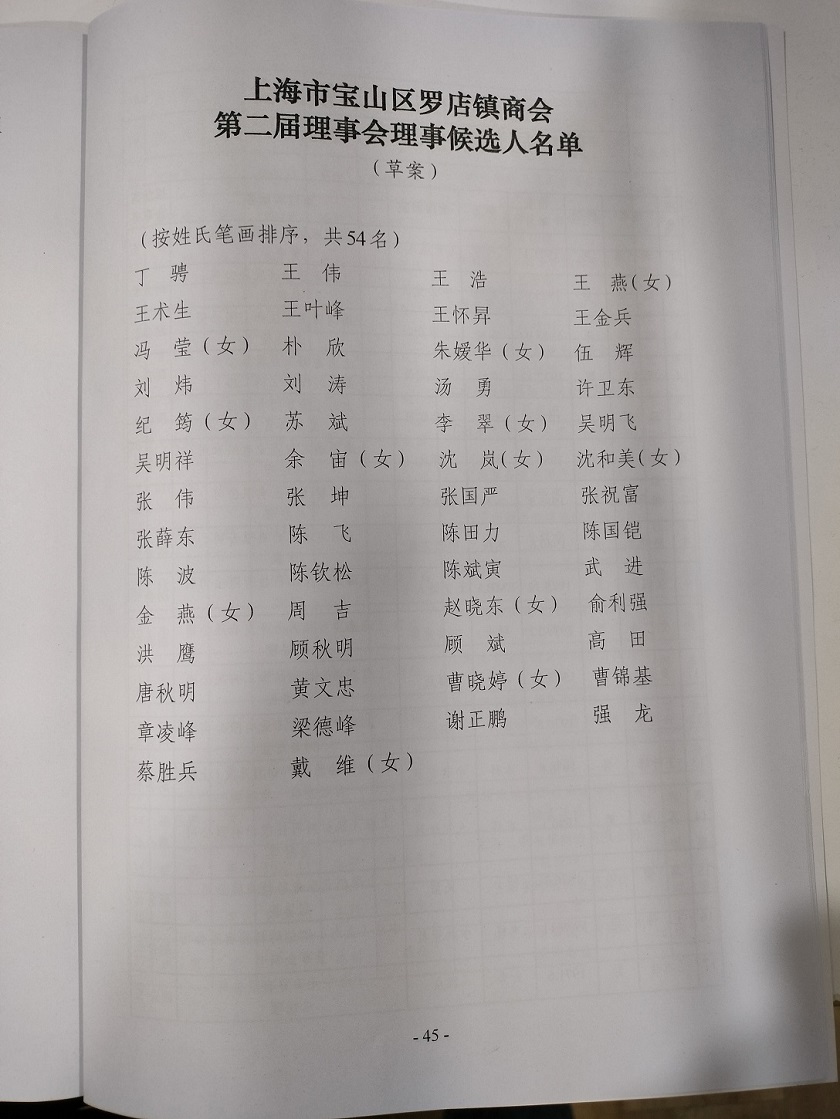 上海市宝山区罗店镇商会
第二届理事会理事候选人名单
（草案）
（按姓氏笔画排序，共54名）
丁 骋 王 伟 王 浩 王 燕（女）
王术生 王叶峰 王怀昇 王金兵
冯 莹（女） 朴 欣 朱嫒华（女） 伍 辉
刘 炜 刘 涛 汤 勇 许卫东
纪 筠（女） 苏 斌 李 翠（女） 吴明飞
吴明祥 余 宙（女） 沈 岚（女） 沈和美（女）
张 伟 张 坤 张国严 张祝富
张薛东 陈 飞 陈田力 陈国铠
陈 波 陈钦松 陈斌寅 武 进
金 燕（女） 周 吉 赵晓东（女） 俞利强
洪 鹰 顾秋明 顾 斌 高 田
唐秋明 黄文忠 曹晓婷（女） 曹锦基
章凌峰 梁德峰 谢正鹏 强 龙
蔡胜兵 戴 维（女）
- 45 -